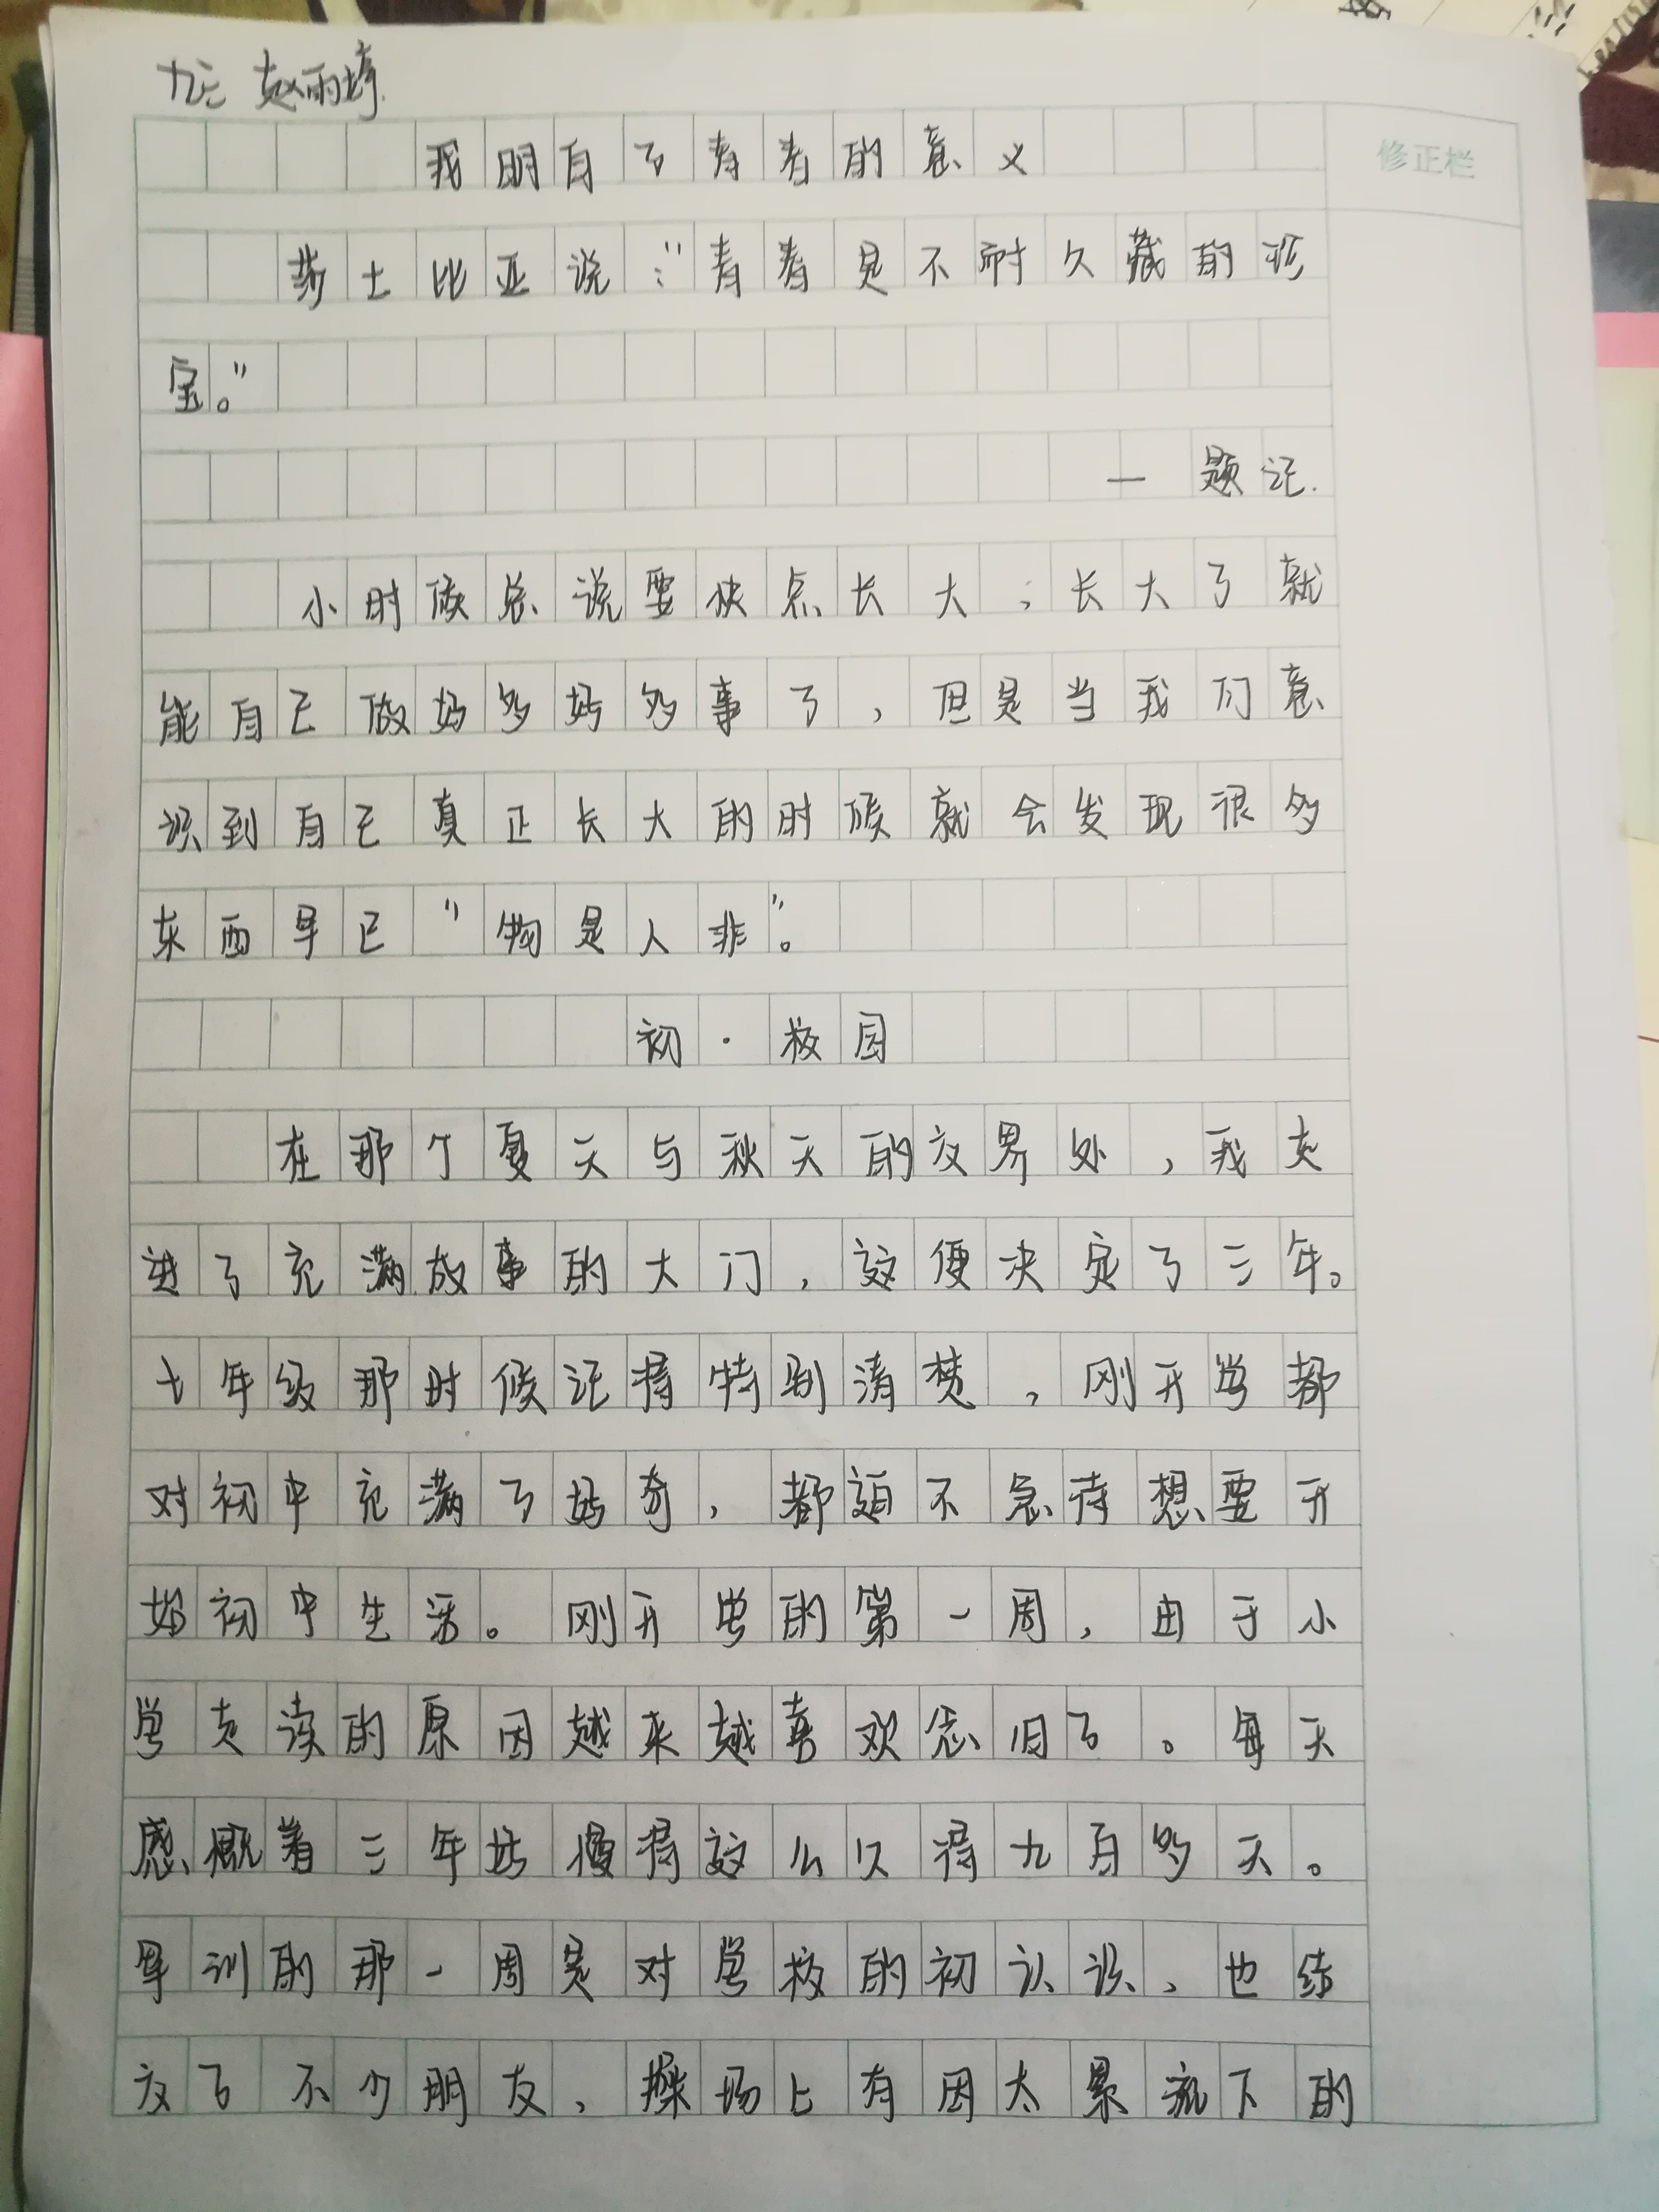 九三 赵雨婷
我明白了青春的意义
修正栏
莎士比亚说:"青春是不耐久藏的珍
宝。"
— 题记.
小时候总说要快点长大,长大了就
能自己做好多好多事了,但是当我们意
识到自己真正长大的时候就会发现很多
东西早已"物是人非"。
初·校园
在那个夏天与秋天的交界处,我走
进了充满故事的大门,这便决定了三年。
七年级那时候记得特别清楚,刚开学都
对初中充满了好奇,都迫不急待想要开
始初中生活。刚开学的第一周,由于小
学走读的原因越来越喜欢念旧了。每天
感概着三年好慢得这么久得九百多天。
军训的那一周是对学校的初认识,也结
交了不少朋友,操场上有因太累流下的